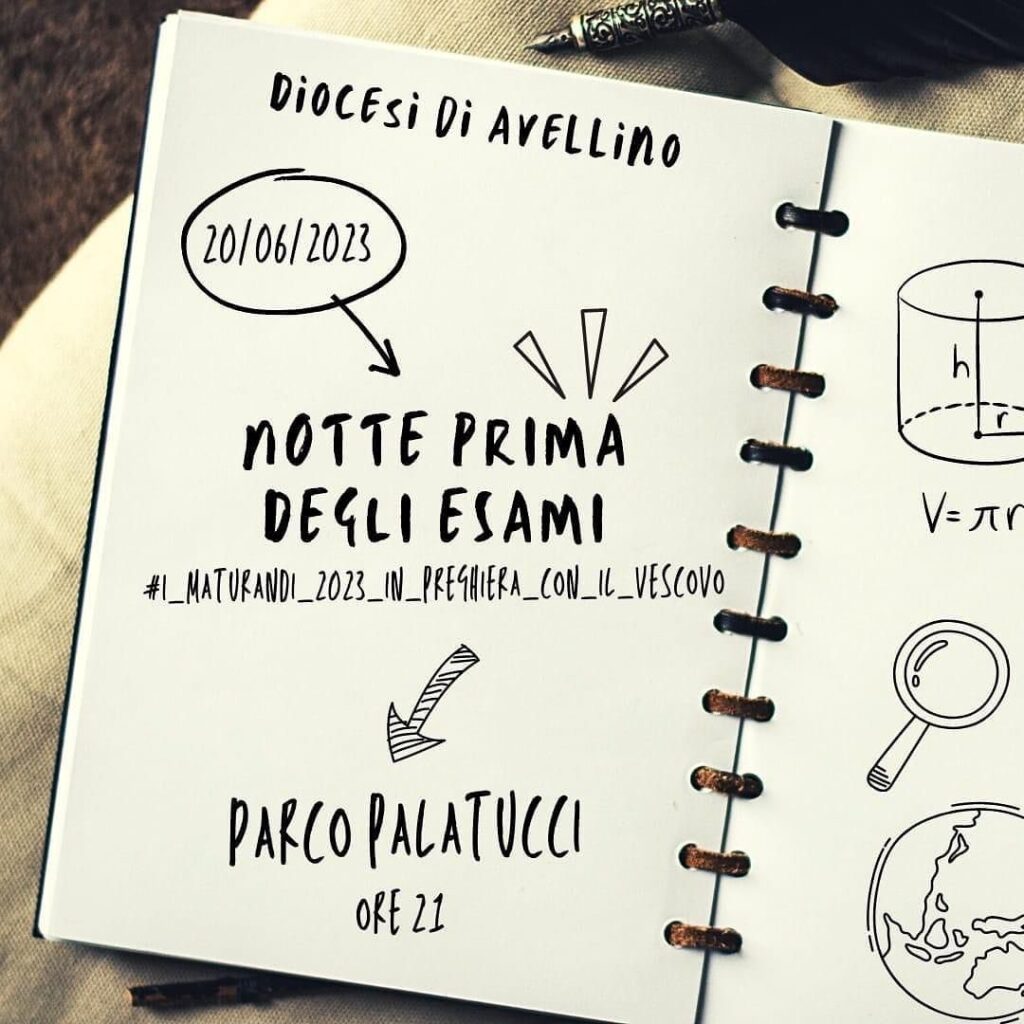 DiOCESi Di AVELLiNO
20/06/2023
NOTTE PRIMA
DEGLI ESAMI
#I_MATURANDI_2023_IN_PREGHIERA_CON_IL_VESCOVO
PARCO PALATUCCI
ORE 21
h
r
V=πr